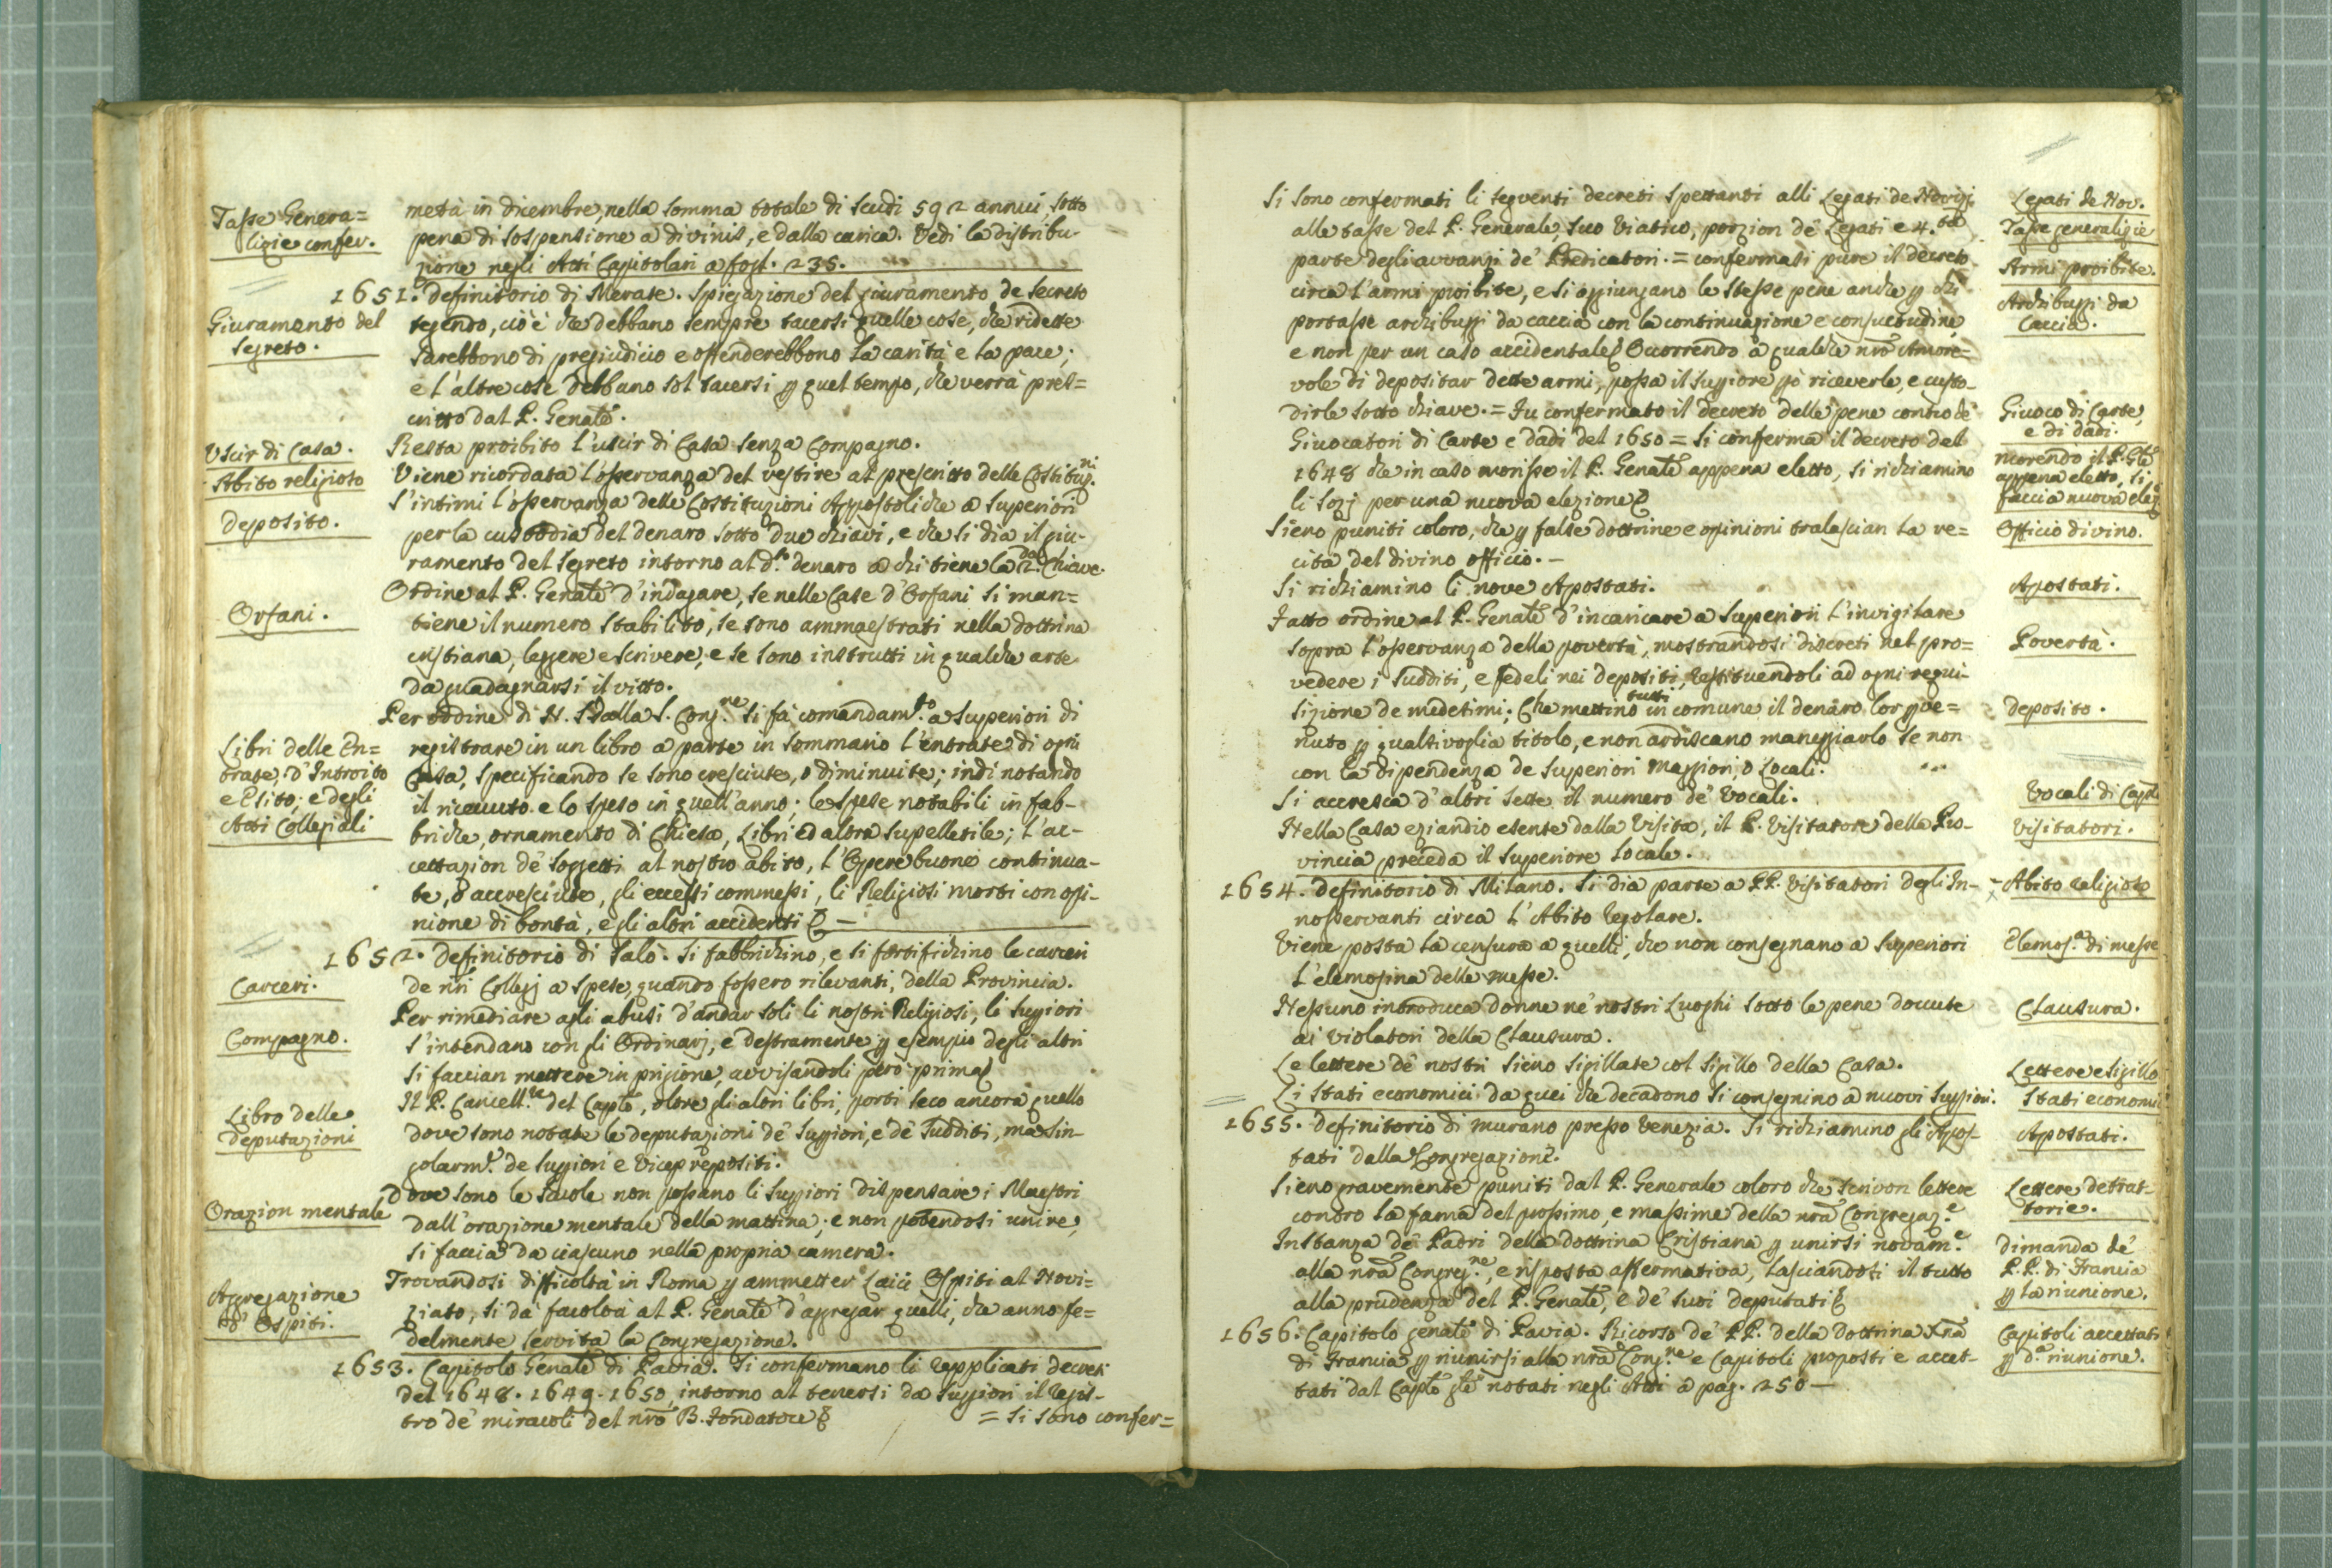 Tasse Genera=
lizie confer.
metà in dicembre, nella somma totale di scudi 592 annui, sotto
pena di sospensione a divinis, e dalla carica. Vedi la distribu-
zione negli Atti Capitolari a fogl. 235.
1651. Definitorio di Merate. Spiegazione del giuramento de secreto
Giuramento del
segreto.
tegendo, cio'è che debbano sempre tacersi quelle cose, che ridette
sarebbono di pregiudicio e offenderebbono la carità e la pace;
e l'altre cose debbano sol tacersi p quel tempo, che verrà pres=
critto dal P. Genale.
Uscir di Casa.
Resta proibito l'uscir di Casa senza Compagno.
Abito religioso
Viene ricordata l'osservanza del vestire al prescritto delle Costituz.ni
Deposito.
S'intimi l'osservanza delle Costituzioni Appostoliche a Superiori
per la custodia del denaro sotto due chiavi, e che si dia il giu-
ramento del segreto intorno al d.to denaro a chi tiene la 2.da Chiave.
Orfani.
Ordine al P. Genale d'indagare, se nelle Case d'Orfani si man=
tiene il numero stabilito, se sono ammaestrati nella dottrina
cristiana, leggere e scrivere, e se sono instrutti in qualche arte
da guadagnarsi il vitto.
Per ordine di N. S. dalla S. Cong.ne si fà comandam.to a Superiori di
Libri delle En=
trate, d'Introito
e Esito; e degli
Atti Collegiali
registrare in un libro a parte in sommario l'entrate di ogni
Casa, specificando se sono cresciute, o diminuite; indi notando
il ricevuto e lo speso in quell'anno; le spese notabili in fab-
briche, ornamento di Chiesa, Libri ed altra supelletile; l'ac-
cettazion de' soggetti al nostro abito, l'Opere buone continua-
te, o accresciute, gli eccessi commessi, li Religiosi morti con opi-
nione di bontà, e gli altri accidenti &
1652. Definitorio di Salò. Si fabbrichino, e si fortifichino le carceri
Carceri.
de nri Collegj a spese, quando fossero rilevanti, della Provincia.
Compagno.
Per rimediare agli abusi d'andar soli li nostri Religiosi, li Suppiori
s'intendano con gli Ordinarj, e destramente p esempio degli altri
si faccian mettere in prigione, avvisandoli però prima
Libro delle
deputazioni
Il P. Cancell.re del Caplo, oltre gli altri libri, porti seco ancora quello
dove sono notate le deputazioni de' Suppiori, e de' sudditi, ma sin-
golarm.e de Suppiori e Vicepreposti.
Orazion mentale
Dove sono le scuole non possano li Suppiori dispensare i Maestri
dall'orazione mentale della mattina; e non potendosi unire,
si faccia da ciascuno nella propria camera.
Aggregazione
d'Ospiti.
Trovandosi difficoltà in Roma p ammetter Laici Ospiti al Novi=
ziato, si dà facoltà al P. Genale d'aggregar quelli, che anno fe=
delmente servita la Congregazione.
1653. Capitolo Genale di Pavia. Si confermano li replicati decreti
del 1648. 1649. 1650, intorno al tenersi da Suppiori il regis-
tro de' miracoli del nro B. Fondatore & = si sono confer=
Si sono confermati li seguenti decreti spettanti alli Legati de Novizj
Legati de Nov.
alle tasse del P. Generale, suo Viatico, porzion de' Legati e 4.ta
Tasse generalizie
parte degli avvanzi de' Predicatori. = confermati pure il decreto
Armi proibite.
circa l'armi proibite, e si aggiungano le stesse pene anche p chi
Archibuggi da
caccia.
portasse archibuggi da caccia con la continuazione e consuetudine,
e non per un caso accidentale. Ocorrendo a qualche nro Amore=
vole di depositar dette armi, possa il Suppiore pò riceverle, e custo-
dirle sotto chiave. = Fu confermato il decreto delle pene contro de'
Giuoco di Carte,
e di dadi.
Giuocatori di Carte e dadi del 1650 = Si conferma il decreto del
1648 che in caso morisse il P. Genale appena eletto, si richiamino
morendo il P. Gle
appena eletto, si
faccia nuova elez.
li sozj per una nuova elezione
Sieno puniti coloro, che p false dottrine e opinioni tralascian la re=
Officio divino.
cita del divino officio. -
Si richiamino li nove Apostati.
Apostati.
Fatto ordine al P. Genale d'incaricare a Superiori l'invigilare
sopra l'osservanza della povertà, mostrandosi discreti nel pro=
Povertà.
vedere i sudditi, e fedeli nei depositi, restituendoli ad ogni requi-
sizione de medesimi; Che mettino tutti in comune il denaro lor pve=
Deposito.
nuto p qualsivoglia titolo, e non ardiscano maneggiarlo se non
con la dipendenza de Superiori Maggiori, o Locali.
Si accresca d'altri sette il numero de' Vocali.
Vocali di Caplo
Nella Casa eziandio esente dalla Visita, il P. Visitatore della Pro-
Visitatori.
vincia preceda il Superiore locale.
1654. Definitorio di Milano. Si dia parte a PP. Visitatori degl'In-
Abito religioso
nosservanti circa l'Abito regolare.
Viene posta la censura a quelli, che non consegnano a Superiori
Elemos.a di messe
l'elemosina delle messe.
Nessuno introduca donne ne' nostri Luoghi sotto le pene dovute
Clausura.
ai violatori della Clausura.
Le lettere de' nostri sieno sigillate col sigillo della Casa.
Lettere e sigillo
Li stati economici da quei che decadono si consegnino a nuovi Suppiori.
Stati economi
1655. Definitorio di Murano presso Venezia. Si richiamino gli Apos-
Apostati.
tati dalla Congregazione.
Sieno gravemente puniti dal P. Generale coloro che scrivon lettere
Lettere detrat-
torie.
contro la fama del prossimo, e massime della nra Congregaz.e
Instanza de' Padri della dottrina Cristiana p unirsi novam.e
Dimanda de'
P.P. di Francia
p la riunione.
alla nra Congreg.ne, e risposta affermativa, lasciandosi il tutto
alla prudenza del P. Genale, e de' suoi deputati
1656. Capitolo genale di Pavia. Ricorso de' PP. della dottrina Xna
Capitoli accettati
p d.a riunione.
di Francia p riunirsi alla nra Cong.ne e Capitoli proposti e accet-
tati dal Caplo gle notati negli Atti a pag. 250 —